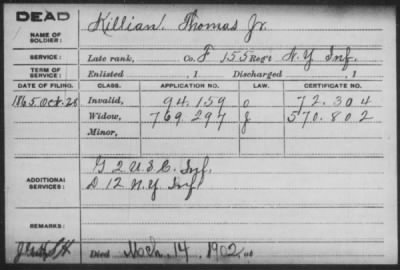 DEAD
NAME OF SOLDIER: Killian, Thomas Jr.
SERVICE: Late rank, Co. F 155 Reg't N.Y. Inf.
TERM OF SERVICE: Enlisted , 1 Discharged , 1
DATE OF FILING. CLASS. APPLICATION NO. LAW. CERTIFICATE NO.
1865 Oct. 28 Invalid, 94.159 72.304
Widow, 769.297 570.802
Minor,
ADDITIONAL SERVICES: G 2 U.S.C. Inf.
D 12 N.Y. Inf.
REMARKS:
Died Mch. 14, 1902, at